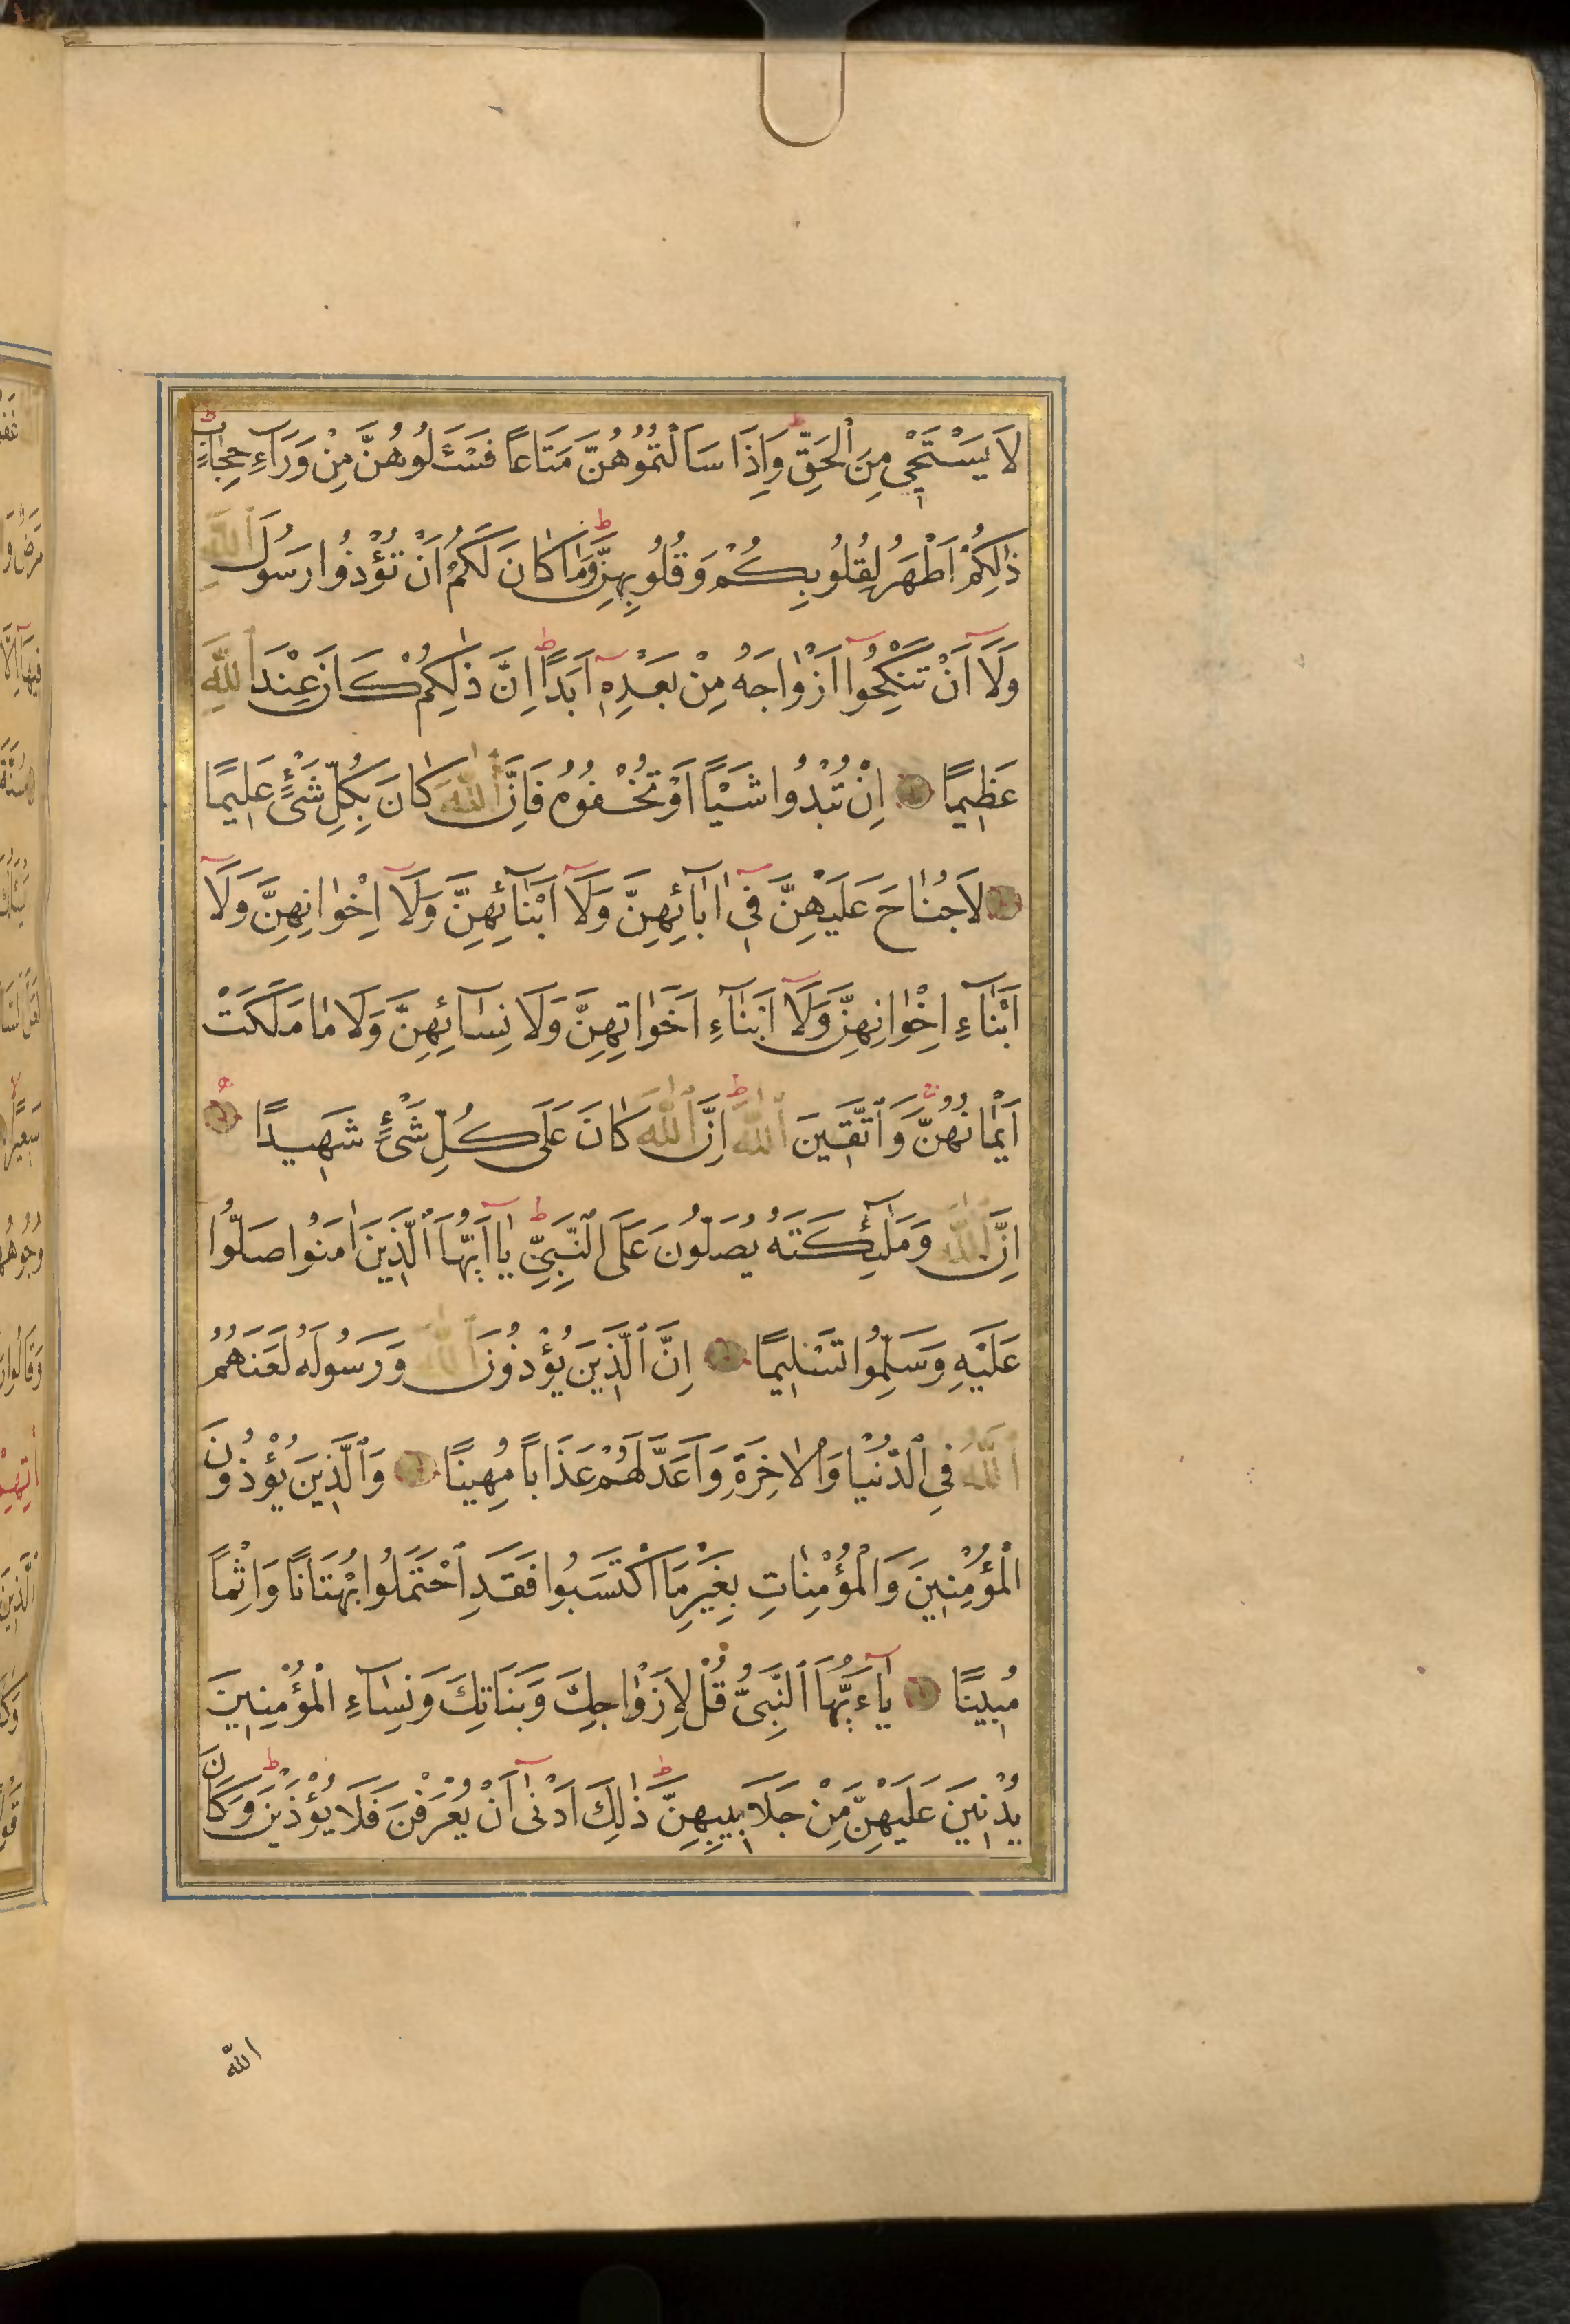 لَا يَسْتَحْيٖ مِنَ ٱلْحَقِّ وَاِذَا سَاَلْتُمُوهُنَّ مَتَاعًا فَسْـَٔلُوهُنَّ مِنْ وَرَآءِ حِجَابٍ
ذٰلِكُمْ اَطْهَرُ لِقُلُوبِكُمْ وَقُلُوبِهِنَّ وَمَا كَانَ لَكُمْ اَنْ تُؤْذُوا رَسُولَ ٱللّٰهِ
وَلَٓا اَنْ تَنْكِحُٓوا اَزْوَاجَهُ مِنْ بَعْدِهٖٓ اَبَدًا اِنَّ ذٰلِكُمْ كَانَ عِنْدَ ٱللّٰهِ
عَظٖيمًا اِنْ تُبْدُوا شَيْـًٔا اَوْ تُخْفُوهُ فَاِنَّ ٱللّٰهَ كَانَ بِكُلِّ شَیْءٍ عَلٖيمًا
لَا جُنَاحَ عَلَيْهِنَّ فٖٓي اٰبَآئِهِنَّ وَلَٓا اَبْنَآئِهِنَّ وَلَٓا اِخْوَانِهِنَّ وَلَٓا
اَبْنَآءِ اِخْوَانِهِنَّ وَلَٓا اَبْنَآءِ اَخَوَاتِهِنَّ وَلَا نِسَآئِهِنَّ وَلَا مَا مَلَكَتْ
اَيْمَانُهُنَّ وَٱتَّقٖينَ ٱللّٰهَ اِنَّ ٱللّٰهَ كَانَ عَلَى كُلِّ شَیْءٍ شَهٖيدًا
اِنَّ ٱللّٰهَ وَمَلٰٓئِكَتَهُ يُصَلُّونَ عَلَى ٱلنَّبِىِّ يَآ اَيُّهَا ٱلَّذٖينَ اٰمَنُوا صَلُّوا
عَلَيْهِ وَسَلِّمُوا تَسْلٖيمًا اِنَّ ٱلَّذٖينَ يُؤْذُونَ ٱللّٰهَ وَرَسُولَهُ لَعَنَهُمُ
ٱللّٰهُ فِي ٱلدُّنْيَا وَٱلْاٰخِرَةِ وَاَعَدَّ لَهُمْ عَذَابًا مُهٖينًا وَٱلَّذٖينَ يُؤْذُونَ
ٱلْمُؤْمِنٖينَ وَٱلْمُؤْمِنَاتِ بِغَيْرِ مَا ٱكْتَسَبُوا فَقَدِ ٱحْتَمَلُوا بُهْتَانًا وَاِثْمًا
مُبٖينًا يَآءَيُّهَا ٱلنَّبِىُّ قُلْ لِاَزْوَاجِكَ وَبَنَاتِكَ وَنِسَآءِ ٱلْمُؤْمِنٖينَ
يُدْنٖينَ عَلَيْهِنَّ مِنْ جَلَابٖيبِهِنَّ ذٰلِكَ اَدْنٰٓى اَنْ يُعْرَفْنَ فَلَا يُؤْذَيْنَ وَكَانَ
الله